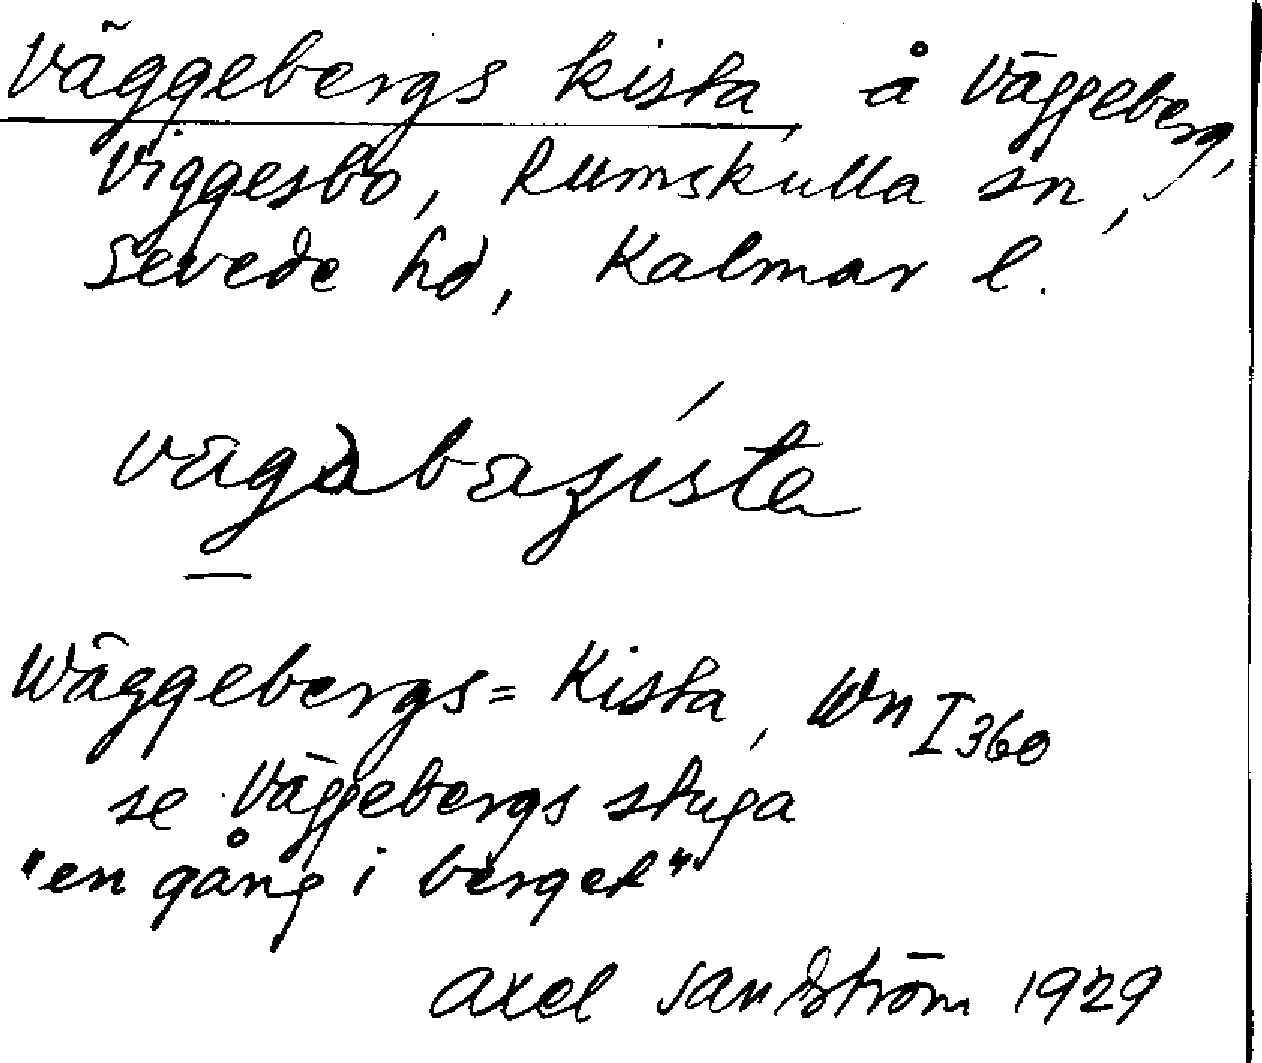 Väggebergs kista, å Väggeberg,
Viggesbo, Rumskulla sn,
Sevede hd, Kalmar l.
Wäggebergs= Kista, Wn I 360
se Väggebergs stuga
"en gång i berget"
Axel Sandström 1929